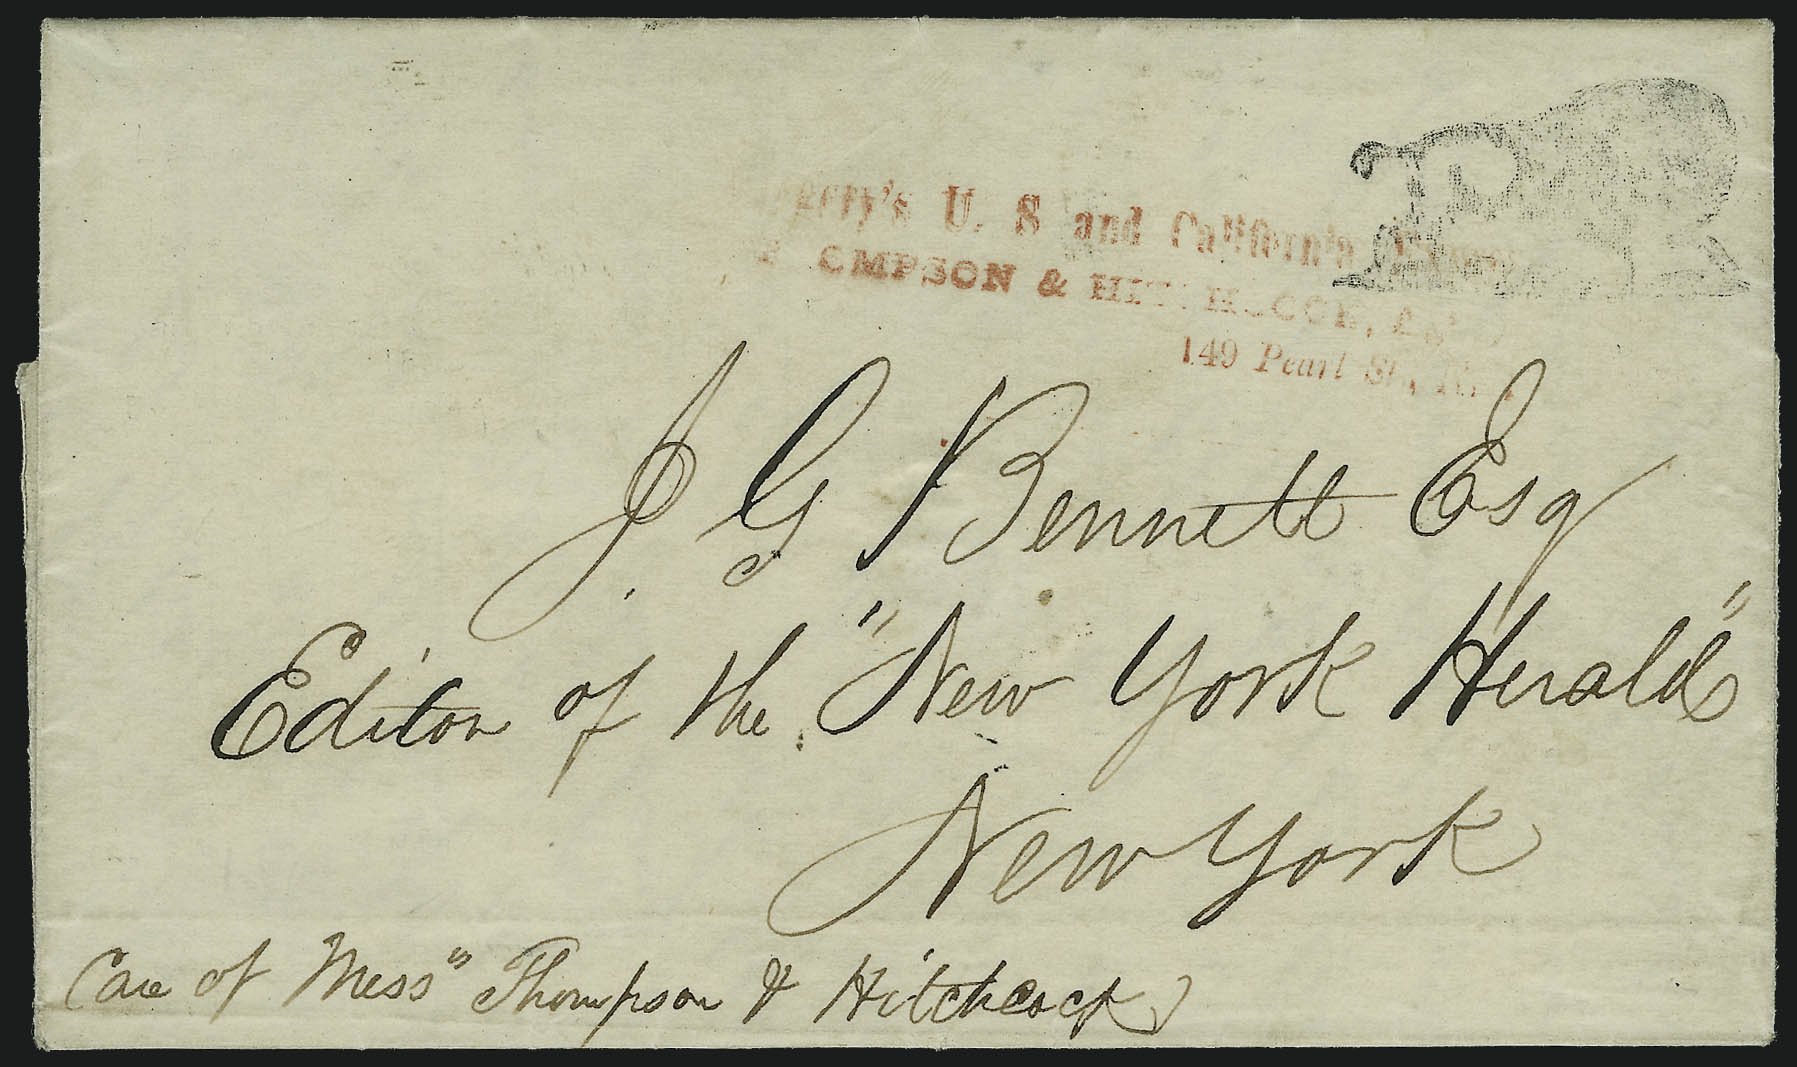 U. S and California
& HITCHCOCK,
149 Pearl St., N.
J. G Bennett Esq
Editor of the "New York Herald"
New York
Care of Mess" Thompson & Hitchcock